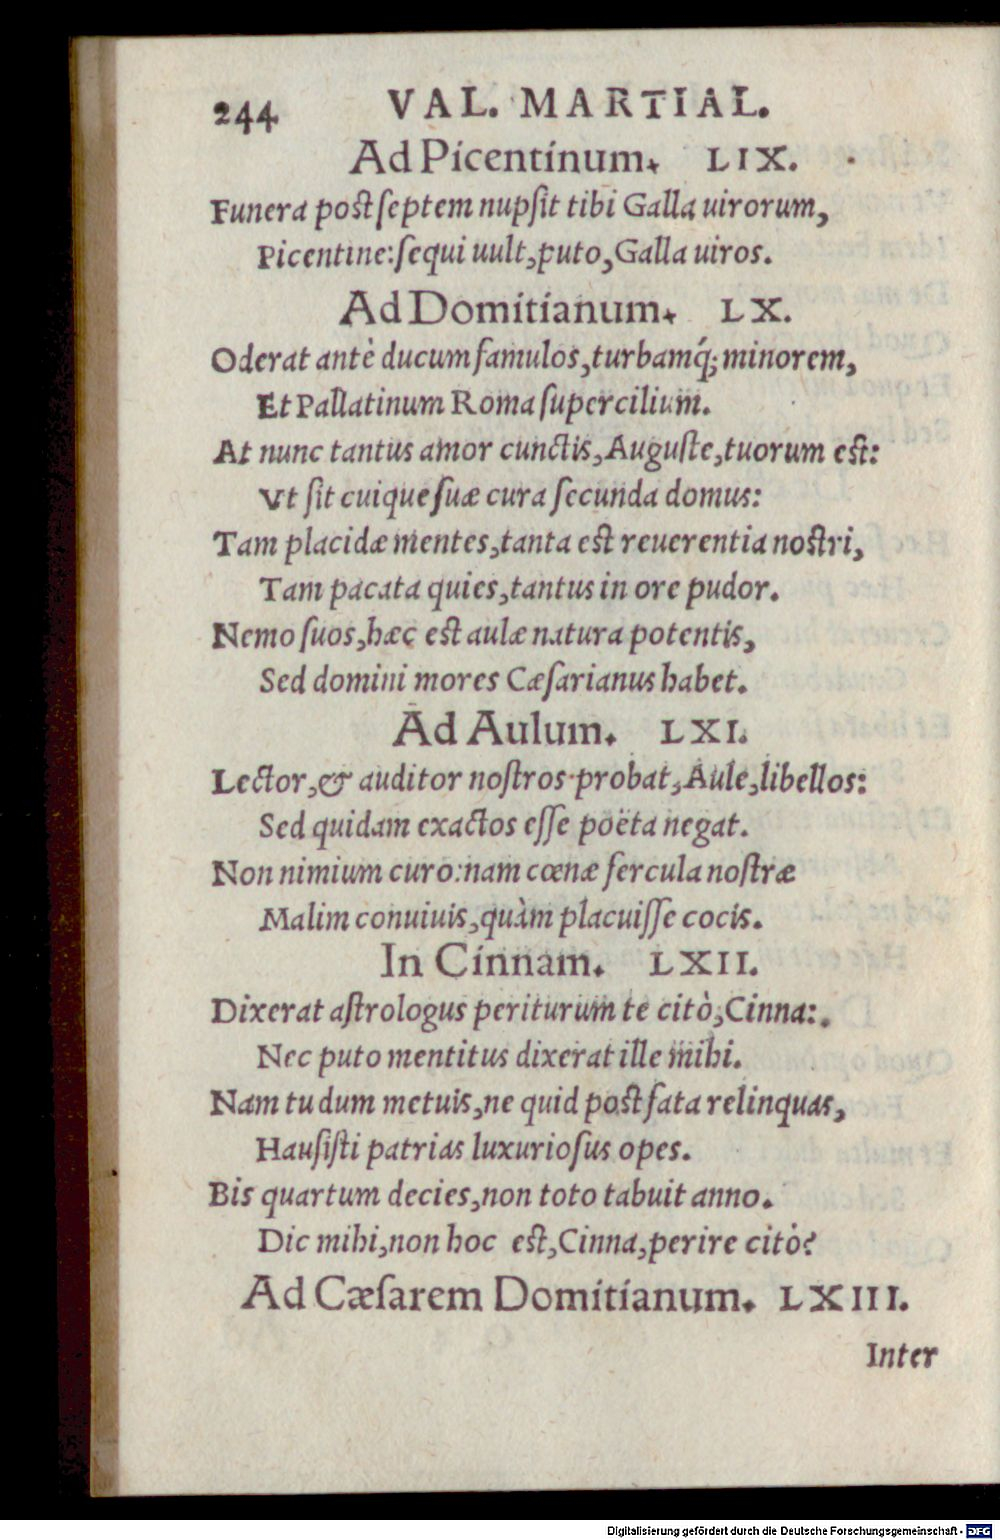 244 VAL. MARTIAL.
Ad Picentinum. LIX.
Funera post ſeptem nupſit tibi Galla uirorum,
Picentine: ſequi uult, puto, Galla uiros.
Ad Domitianum. LX.
Oderat antè ducum famulos, turbamq́; minorem,
Et Pallatinum Roma ſupercilium.
At nunc tantus amor cunctis, Auguſte, tuorum est:
Vt ſit cuique ſuæ cura ſecunda domus:
Tam placidæ mentes, tanta est reuerentia nostri,
Tam pacata quies, tantus in ore pudor.
Nemo ſuos, hæc est aulæ natura potentis,
Sed domini mores Cæſarianus habet.
Ad Aulum. LXI.
Lector, & auditor noſtros probat, Aule, libellos:
Sed quidam exactos eſſe poëta negat.
Non nimium curo: nam cœnæ fercula noſtræ
Malim conuiuis, quàm placuiſſe cocis.
In Cinnam. LXII.
Dixerat aſtrologus periturum te citò, Cinna:.
Nec puto mentitus dixerat ille mihi.
Nam tu dum metuis, ne quid post fata relinquas,
Hauſiſti patrias luxurioſus opes.
Bis quartum decies, non toto tabuit anno.
Dic mihi, non hoc est, Cinna, perire citò?
Ad Cæſarem Domitianum. LXIII.
Inter
Digitalisierung gefördert durch die Deutsche Forschungsgemeinschaft - DFG